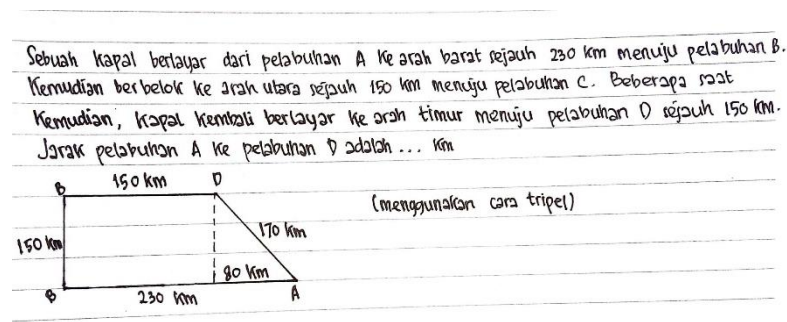 Sebuah kapal berlayar dari pelabuhan A ke arah barat sejauh 230 km menuju pelabuhan B.
Kemudian berbelok ke arah utara sejauh 150 km menuju pelabuhan C. Beberapa saat
kemudian, kapal kembali berlayar ke arah timur menuju pelabuhan D sejauh 150 km.
Jarak pelabuhan A ke pelabuhan D adalah ... km
B 150 km D
(menggunakan cara tripel)
150 km 170 km
80 km
B 230 km A